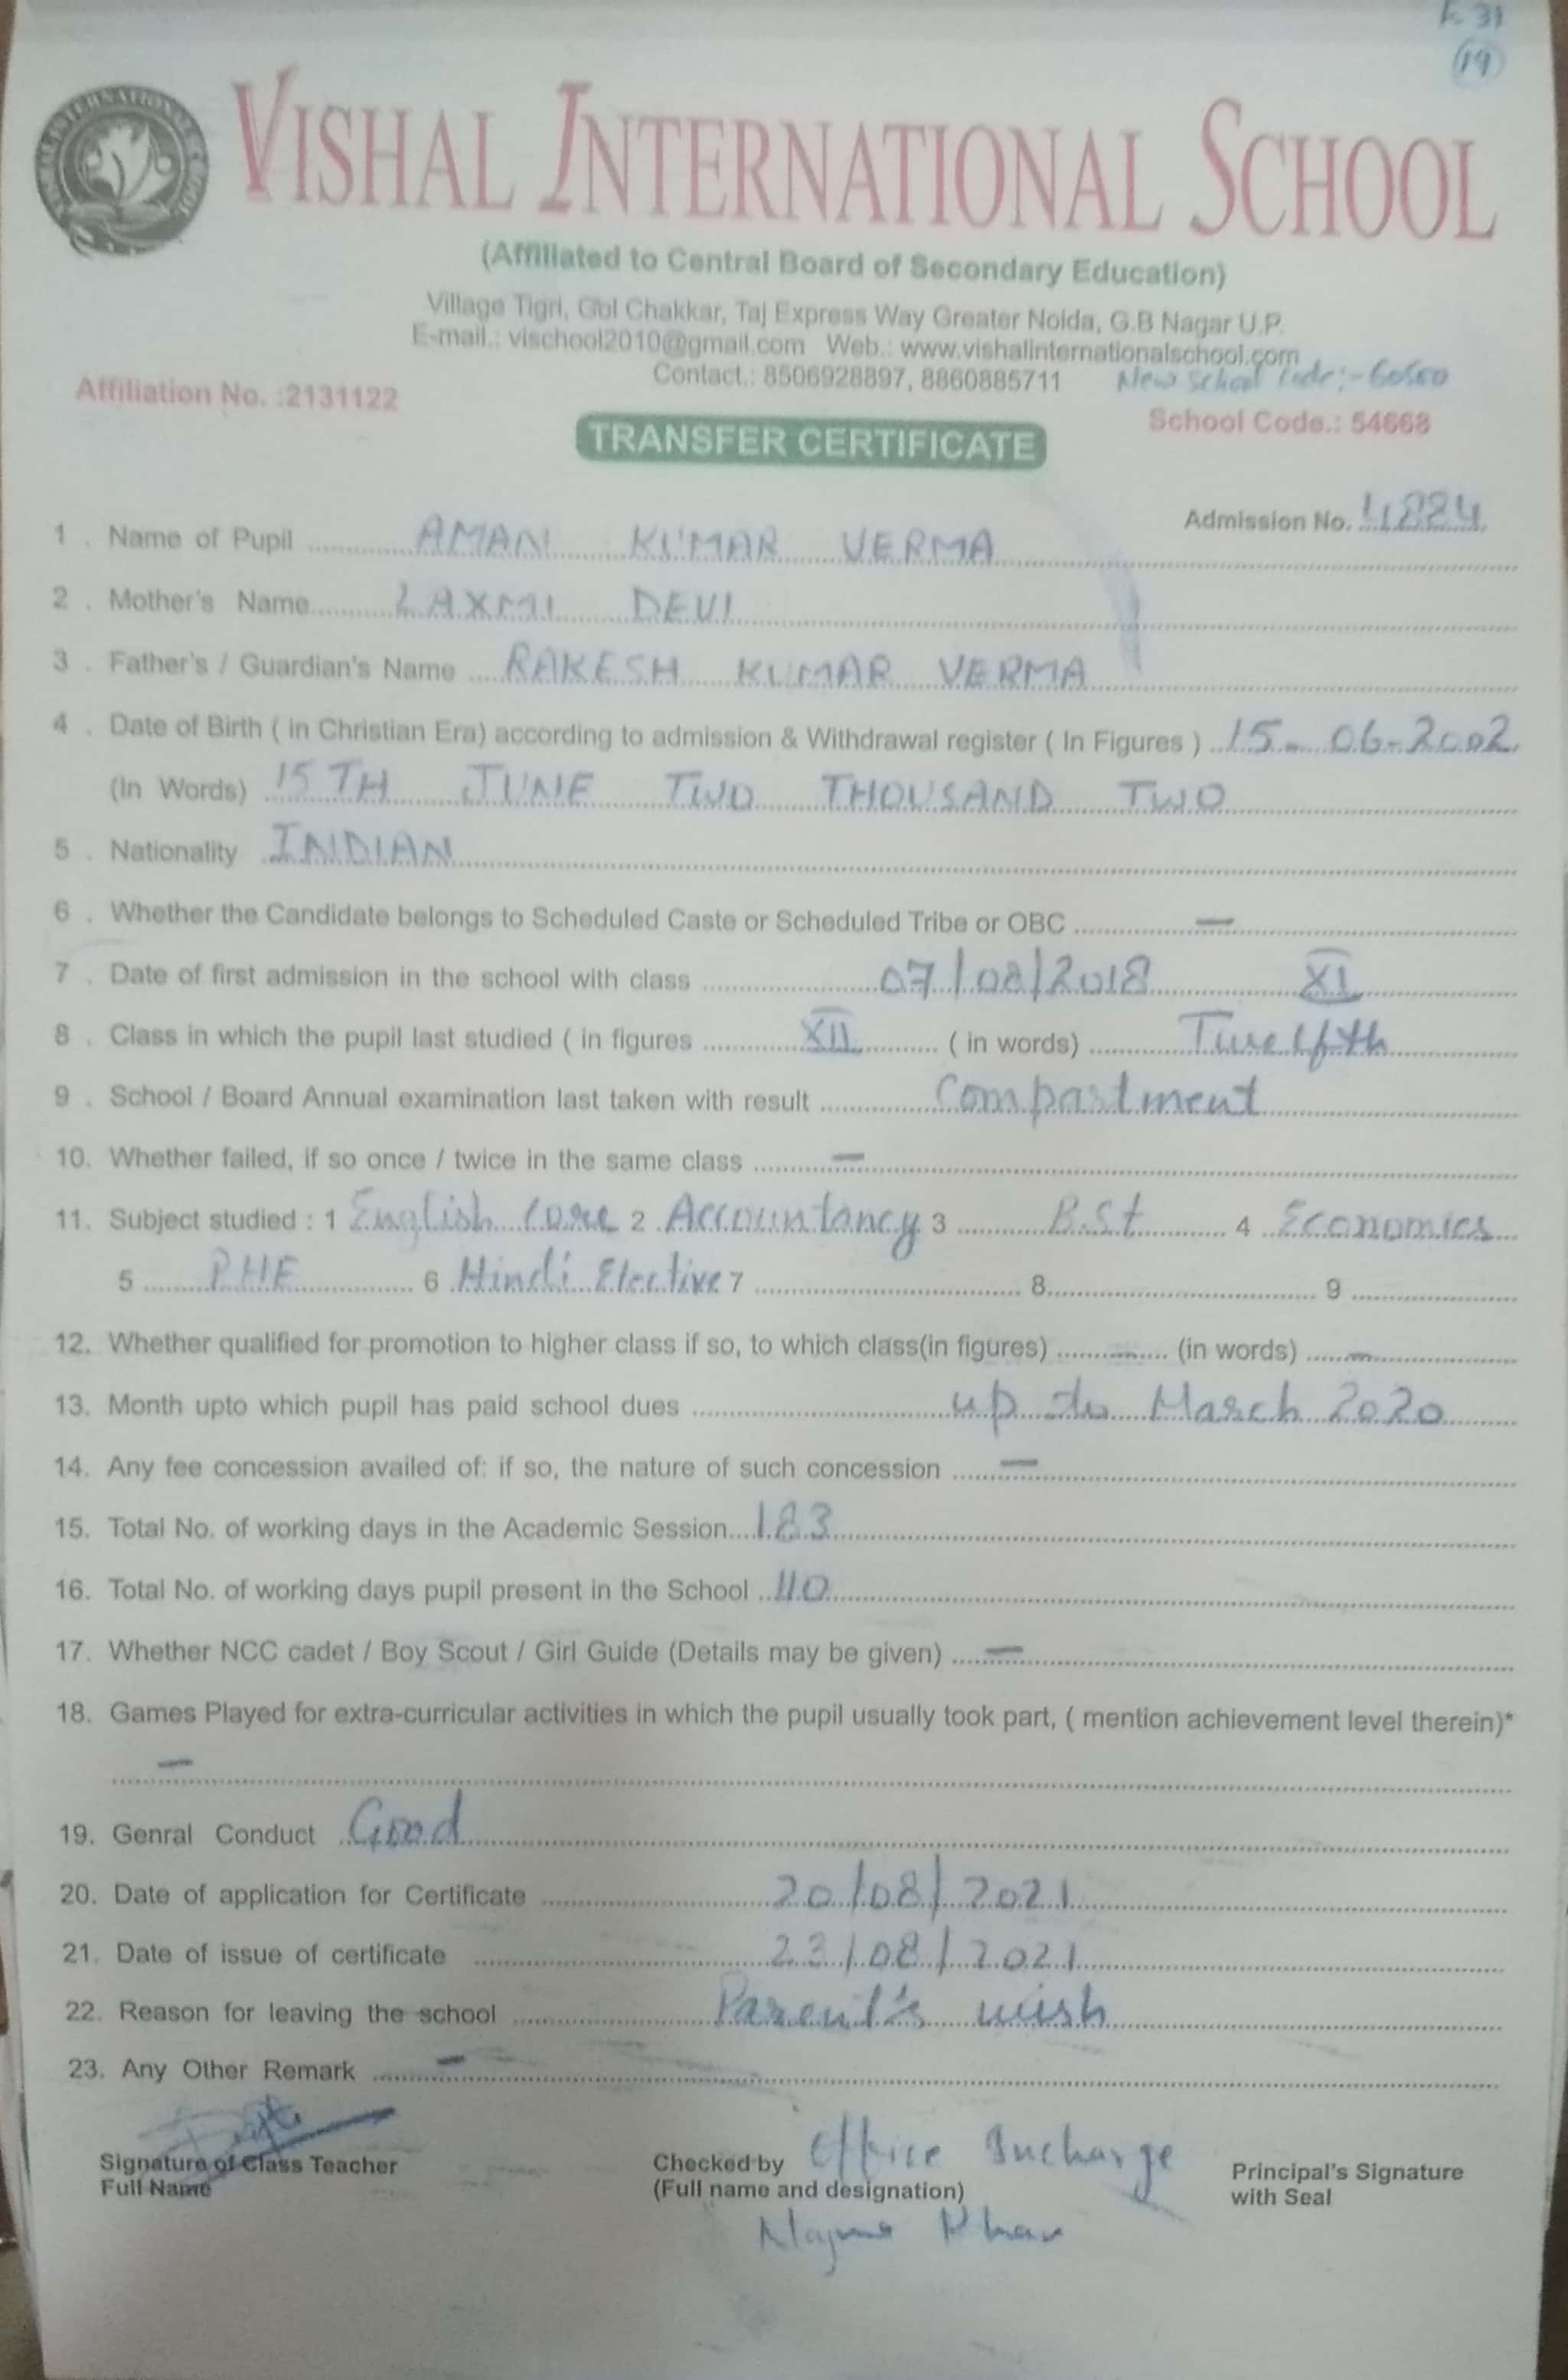 19
VISHAL INTERNATIONAL SCHOOL
(Affiliated to Central Board of Secondary Education)
Village Tigri, Gol Chakkar, Taj Express Way Greater Noida, G.B Nagar U.P.
E-mail.: vischool2010@gmail.com Web.: www.vishalinternationalschool.com
Contact.: 8506928897, 8860885711 New School Code:-
Affiliation No. :2131122
School Code.: 54668
TRANSFER CERTIFICATE
Admission No. 4884
1 . Name of Pupil AMAN KUMAR VERMA
2 . Mother's Name LAXMI DEVI
3 . Father's / Guardian's Name RAKESH KUMAR VERMA
4 . Date of Birth ( in Christian Era) according to admission & Withdrawal register ( In Figures ) 15-06-2002
(In Words) 15TH JUNE TWO THOUSAND TWO
5 . Nationality INDIAN
6 . Whether the Candidate belongs to Scheduled Caste or Scheduled Tribe or OBC —
7 . Date of first admission in the school with class 07/08/2018 XI
8 . Class in which the pupil last studied ( in figures XII ( in words) Twelfth
9 . School / Board Annual examination last taken with result Compartment
10. Whether failed, if so once / twice in the same class —
11. Subject studied : 1 English Core 2 Accountancy 3 B.St 4 Economics
5 PHE 6 Hindi Elective 7 8 9
12. Whether qualified for promotion to higher class if so, to which class(in figures) — (in words) —
13. Month upto which pupil has paid school dues up to March 2020
14. Any fee concession availed of: if so, the nature of such concession —
15. Total No. of working days in the Academic Session 183
16. Total No. of working days pupil present in the School 110
17. Whether NCC cadet / Boy Scout / Girl Guide (Details may be given) —
18. Games Played for extra-curricular activities in which the pupil usually took part, ( mention achievement level therein)*
—
19. Genral Conduct Good
20. Date of application for Certificate 20/08/2021
21. Date of issue of certificate 23/08/2021
22. Reason for leaving the school Parent's wish
23. Any Other Remark —
Signature of Class Teacher
Full Name
Checked by Office Incharge
(Full name and designation)
Khan
Principal's Signature
with Seal